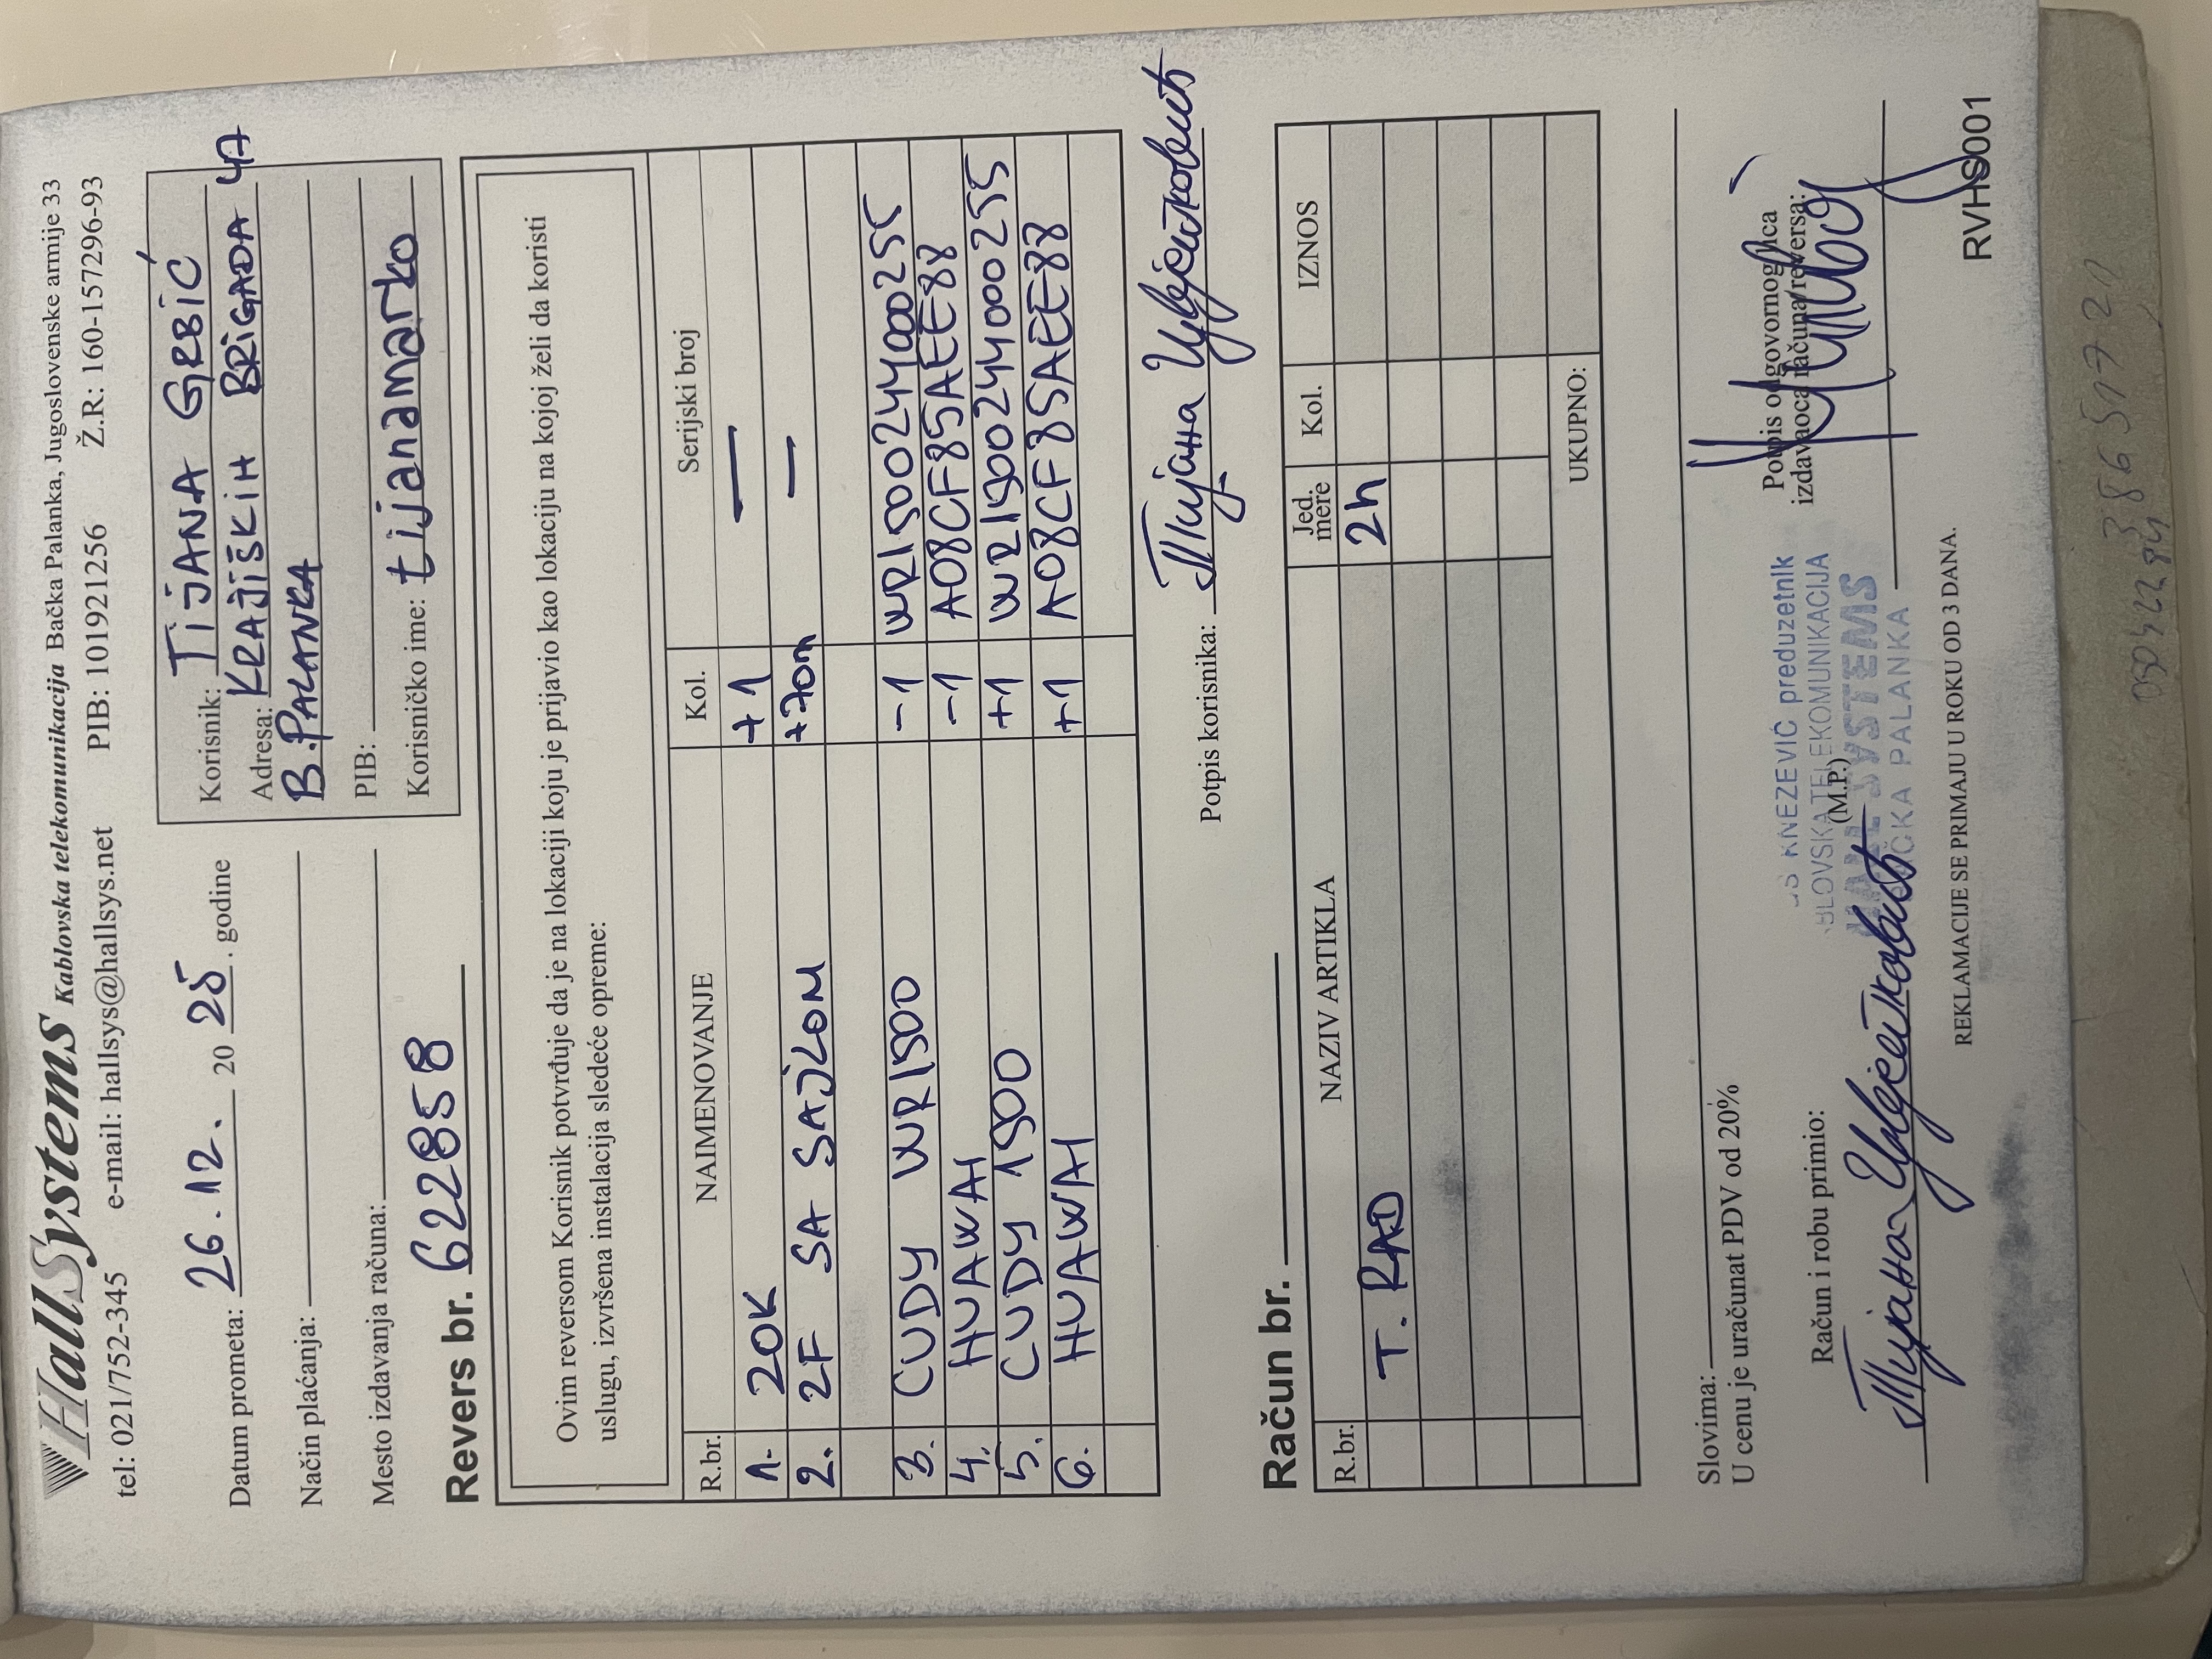 HallSystems Kablovska telekomunikacija Bačka Palanka, Jugoslovenske armije 33
tel: 021/752-345 e-mail: hallsys@hallsys.net PIB: 101921256 Ž.R.: 160-157296-93
Datum prometa: 26.12. 20 25. godine
Način plaćanja:
Mesto izdavanja računa:
Korisnik: TIJANA GRBIĆ
Adresa: KRAJIŠKIH BRIGADA 47
B.PALANKA
PIB:
Korisničko ime: tijanamarko
Revers br. 622858
Ovim reversom Korisnik potvrđuje da je na lokaciji koju je prijavio kao lokaciju na kojoj želi da koristi
uslugu, izvršena instalacija sledeće opreme:
R.br. NAIMENOVANJE Kol. Serijski broj
1. ZOK +1 —
2. 2F SA SAJLOM +70m —
3. CUDY WR1500 -1 WR1500244000255
4. HUAWAI -1 A08CF85AEE88
5. CUDY 1500 +1 WR1500244000255
6. HUAWAI +1 A08CF85AEE88
Potpis korisnika: Тијана Цвјетковић
Račun br.
R.br. NAZIV ARTIKLA Jed. mere Kol. IZNOS
T. RAD 2h
UKUPNO:
Slovima:
U cenu je uračunat PDV od 20%
Račun i robu primio:
Тијана Цвјетковић
KNEZEVIĆ preduzetnik
TELEKOMUNIKACIJA
SYSTEMS
PALANKA
(M.P.)
Potpis odgovornog lica
izdavaoca računa/reversa:
REKLAMACIJE SE PRIMAJU U ROKU OD 3 DANA.
RVHS001